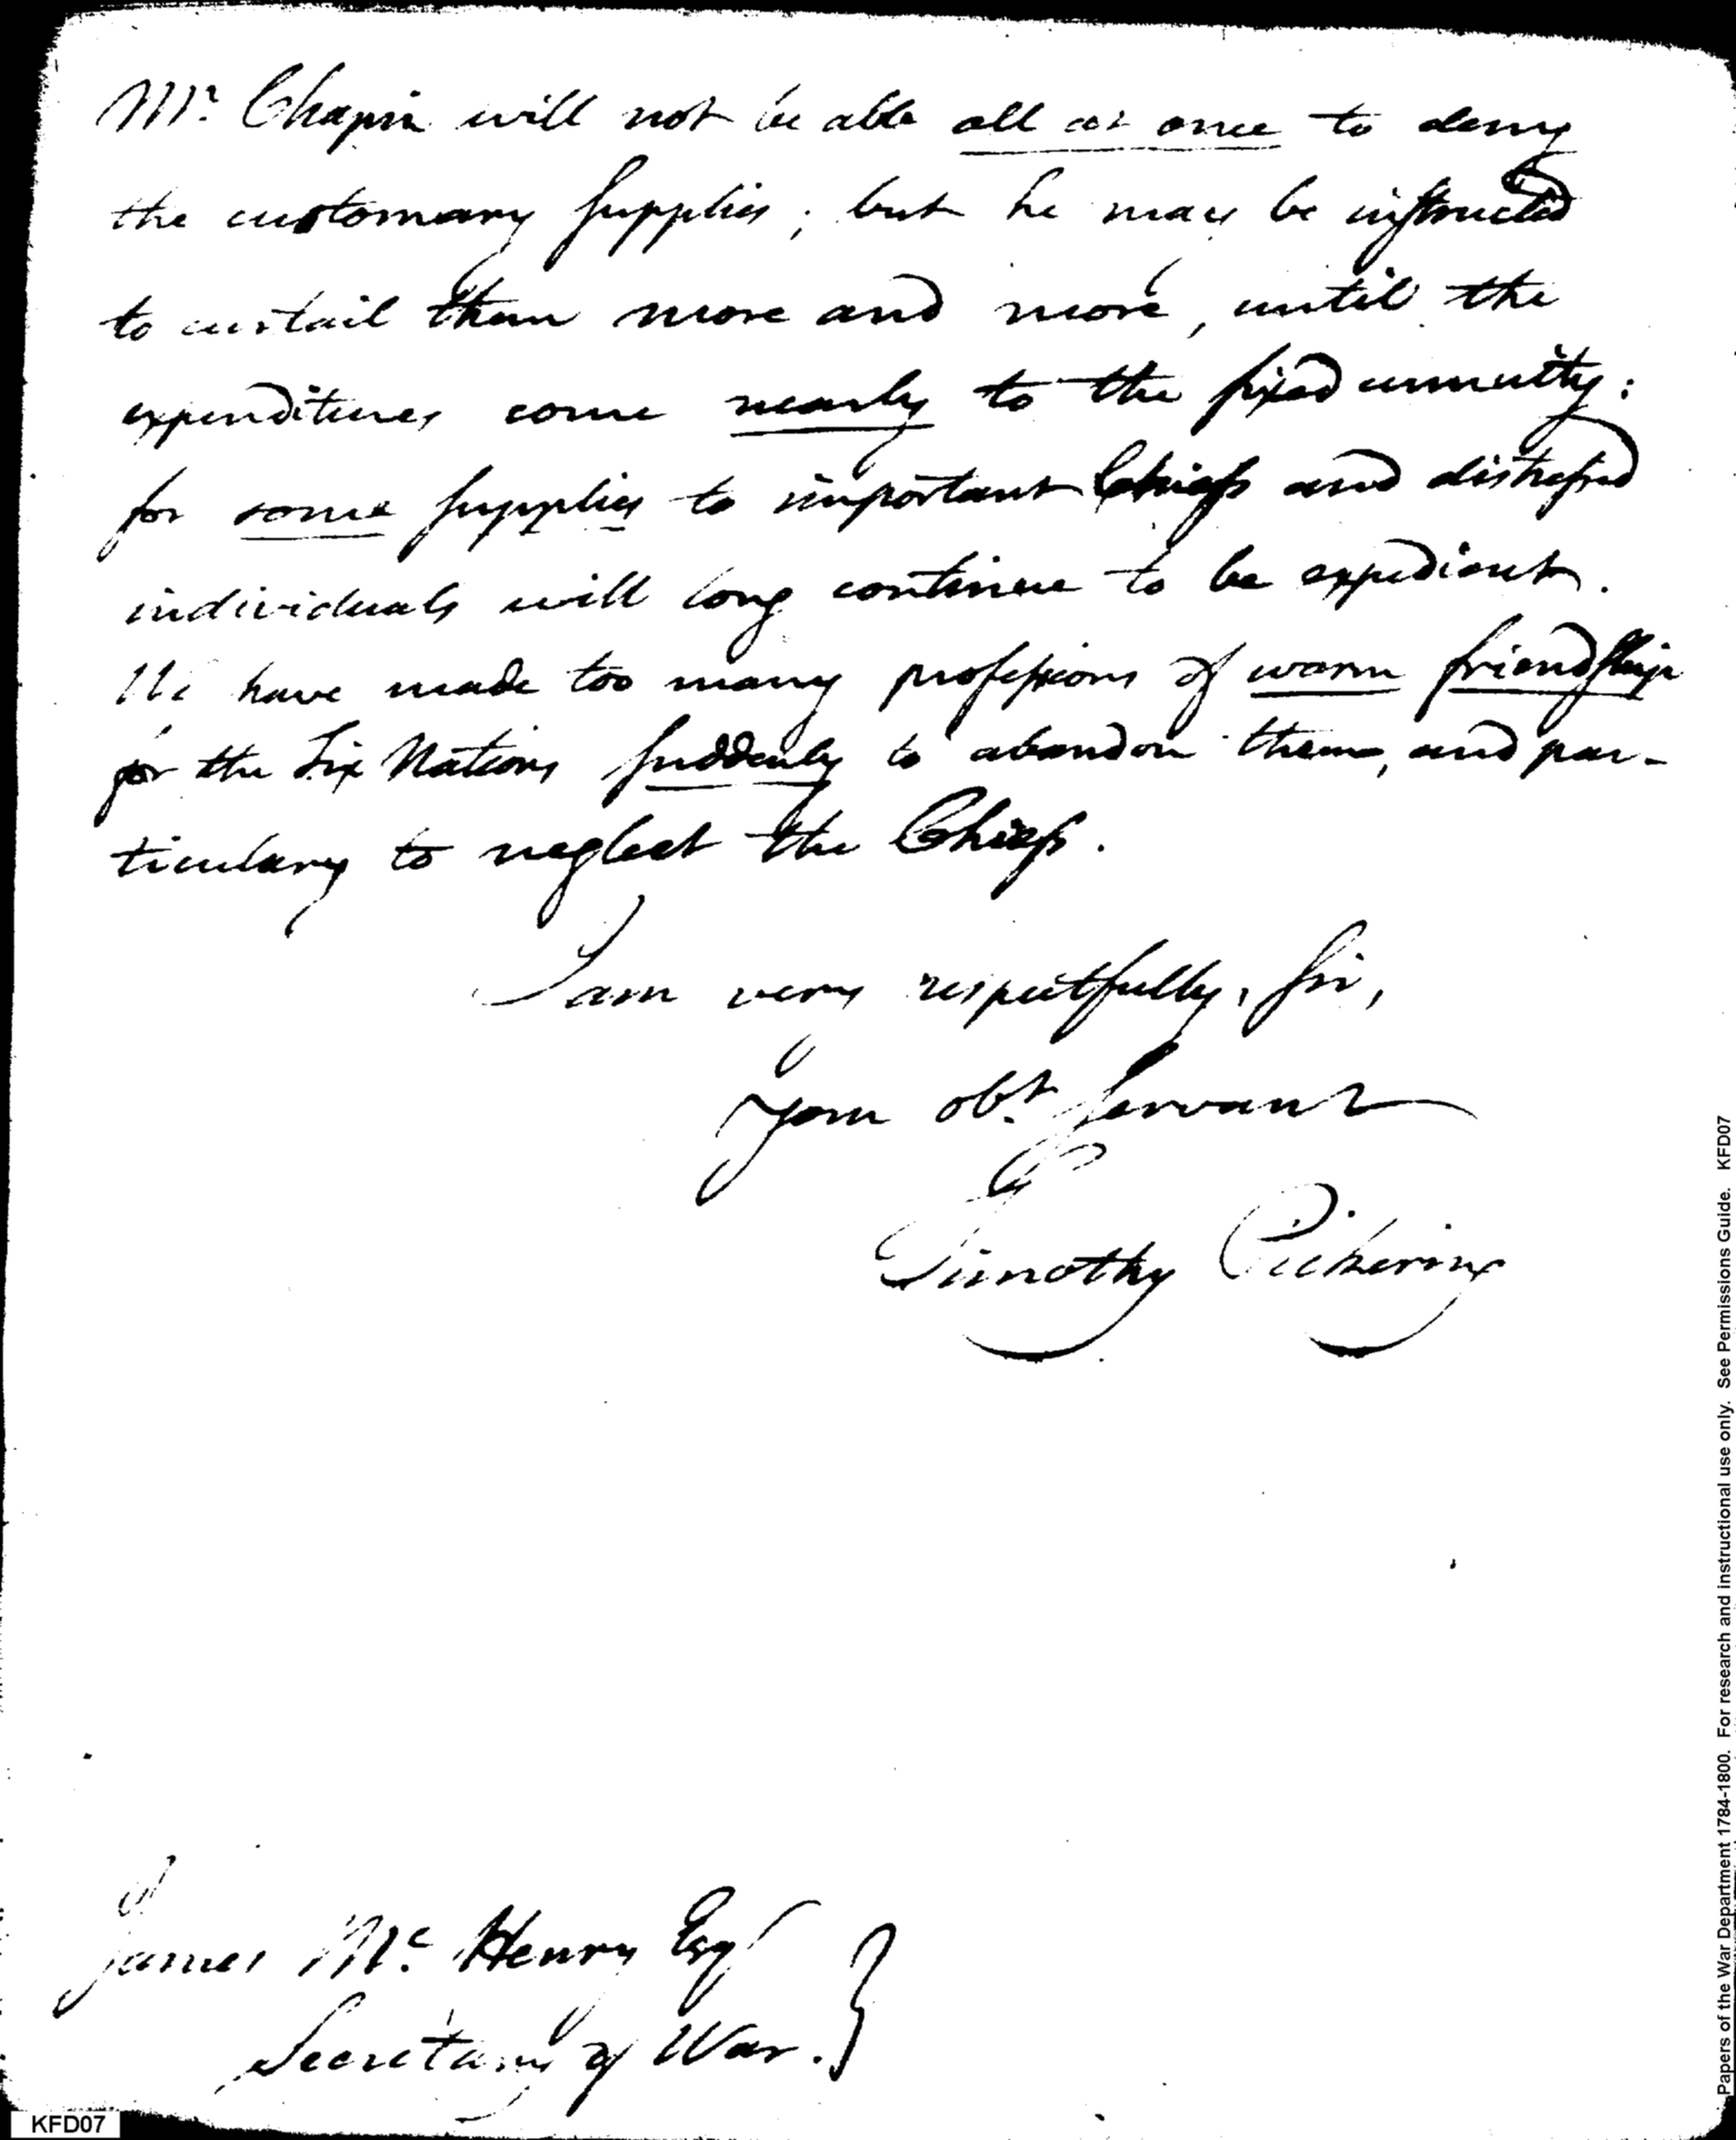 Mr. Chapin will not be able all at once to deny
the customary supplies; but he may be instructed
to curtail them more and more, until the
expenditures come nearly to the fixed annuity:
for some supplies to important Chiefs and distressed
individuals will long continue to be expedient.
We have made too many professions of warm friendship
for the Six Nations suddenly to abandon them, and par-
ticulary to neglect the Chiefs.
I am very respectfully, sir,
Your obt. servant
Timothy Pickering
James Mc. Henry Esqr
Secretary of War.
KFD07
Papers of the War Department 1784-1800. For research and instructional use only. See Permissions Guide. KFD07